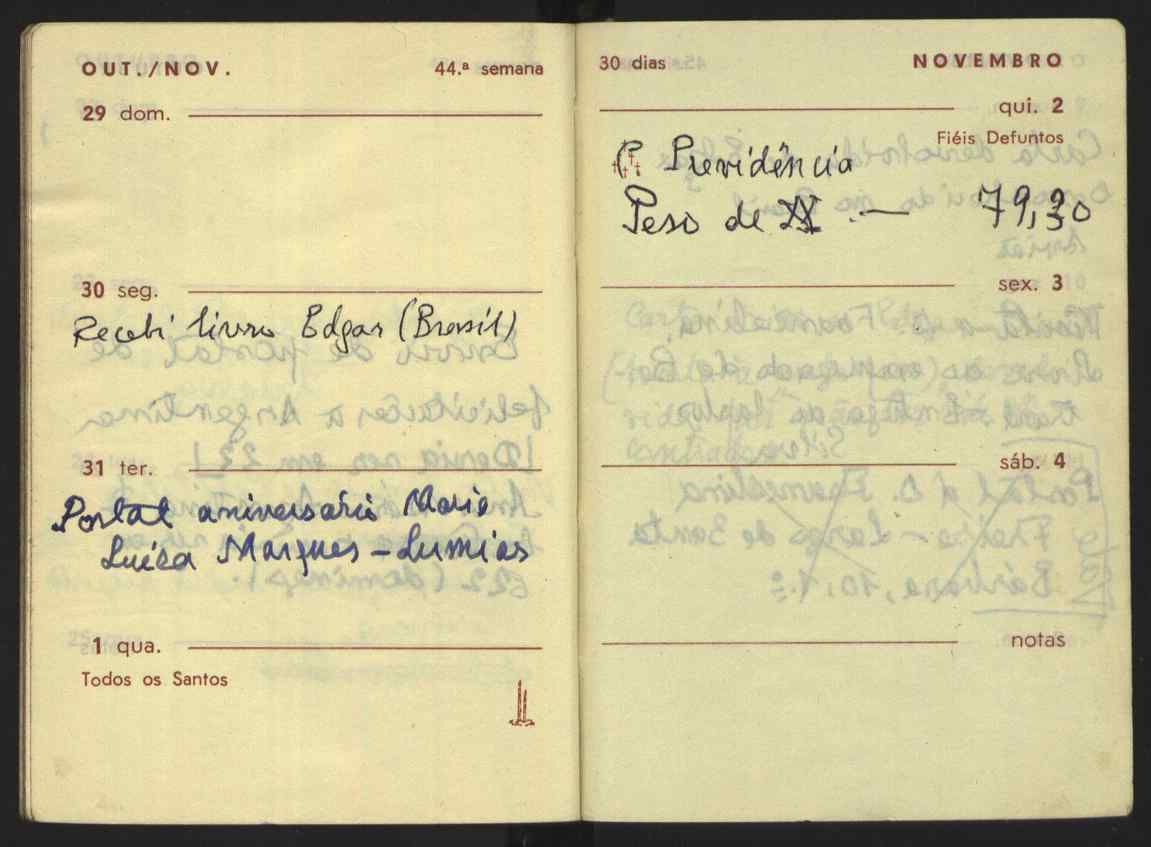 OUT./NOV. 44.ª semana
29 dom.
30 seg.
Recebi livro Edgar (Brasil)
31 ter.
Postal aniversário Maria
Luísa Marques – Lumiar
1 qua.
Todos os Santos
30 dias NOVEMBRO
qui. 2
Fiéis Defuntos
C. Previdência
Peso de — 79,
sex. 3
sáb. 4
notas